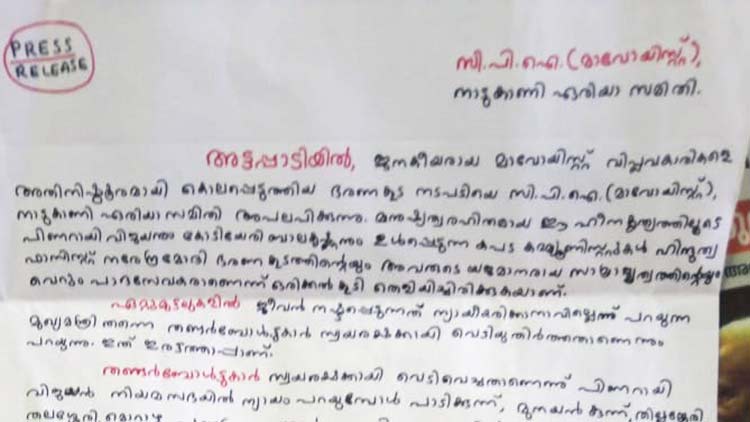 PRESS
RELEASE
സി.പി.ഐ.(മാവോയിസ്റ്റ്),
നാടുകാണി ഏരിയാ സമിതി.
അട്ടപ്പാടിയിൽ, ജനകീയരായ മാവോയിസ്റ്റ് വിപ്ലവകാരികളെ
അതിനിഷ്ഠൂരമായി കൊലപ്പെടുത്തിയ ഭരണകൂട നടപടിയെ സി.പി.ഐ.(മാവോയിസ്റ്റ്),
നാടുകാണി ഏരിയാ സമിതി അപലപിക്കുന്നു. മനുഷ്യത്വരഹിതമായ ഈ ഹീനകൃത്യത്തിലൂടെ
പിണറായി വിജയനും കോടിയേരി ബാലകൃഷ്ണനും ഉൾപ്പെടുന്ന കപട കമ്മ്യൂണിസ്റ്റുകൾ ഹിന്ദുത്വ
ഫാസിസ്റ്റ് നരേന്ദ്രമോദി ഭരണകൂടത്തിന്റെയും അവരുടെ യജമാനരായ സാമ്രാജ്യത്വത്തിന്റെയും
വെറും പാദസേവകരാണെന്ന് ഒരിക്കൽ കൂടി തെളിയിച്ചിരിക്കുകയാണ്.
ഏറ്റുമുട്ടലുകളിൽ ജീവൻ നഷ്ടപ്പെടുന്നത് ന്യായീകരിക്കാനാവില്ലെന്ന് പറയുന്ന
മുഖ്യമന്ത്രി തന്നെ തണ്ടർബോൾട്ടുകാർ സ്വയരക്ഷക്കായി വെടിയുതിർത്തതാണെന്നും
പറയുന്നു. ഇത് ഇരട്ടത്താപ്പാണ്.
തണ്ടർബോൾട്ടുകാർ സ്വയരക്ഷക്കായി വെടിവെച്ചതാണെന്ന് പിണറായി
വിജയൻ നിയമസഭയിൽ ന്യായം പറയുമ്പോൾ പാടിക്കുന്ന്, മുനയൻ കുന്ന്, തില്ലങ്കേരി
തലശ്ശേരി, മൊറാഴ